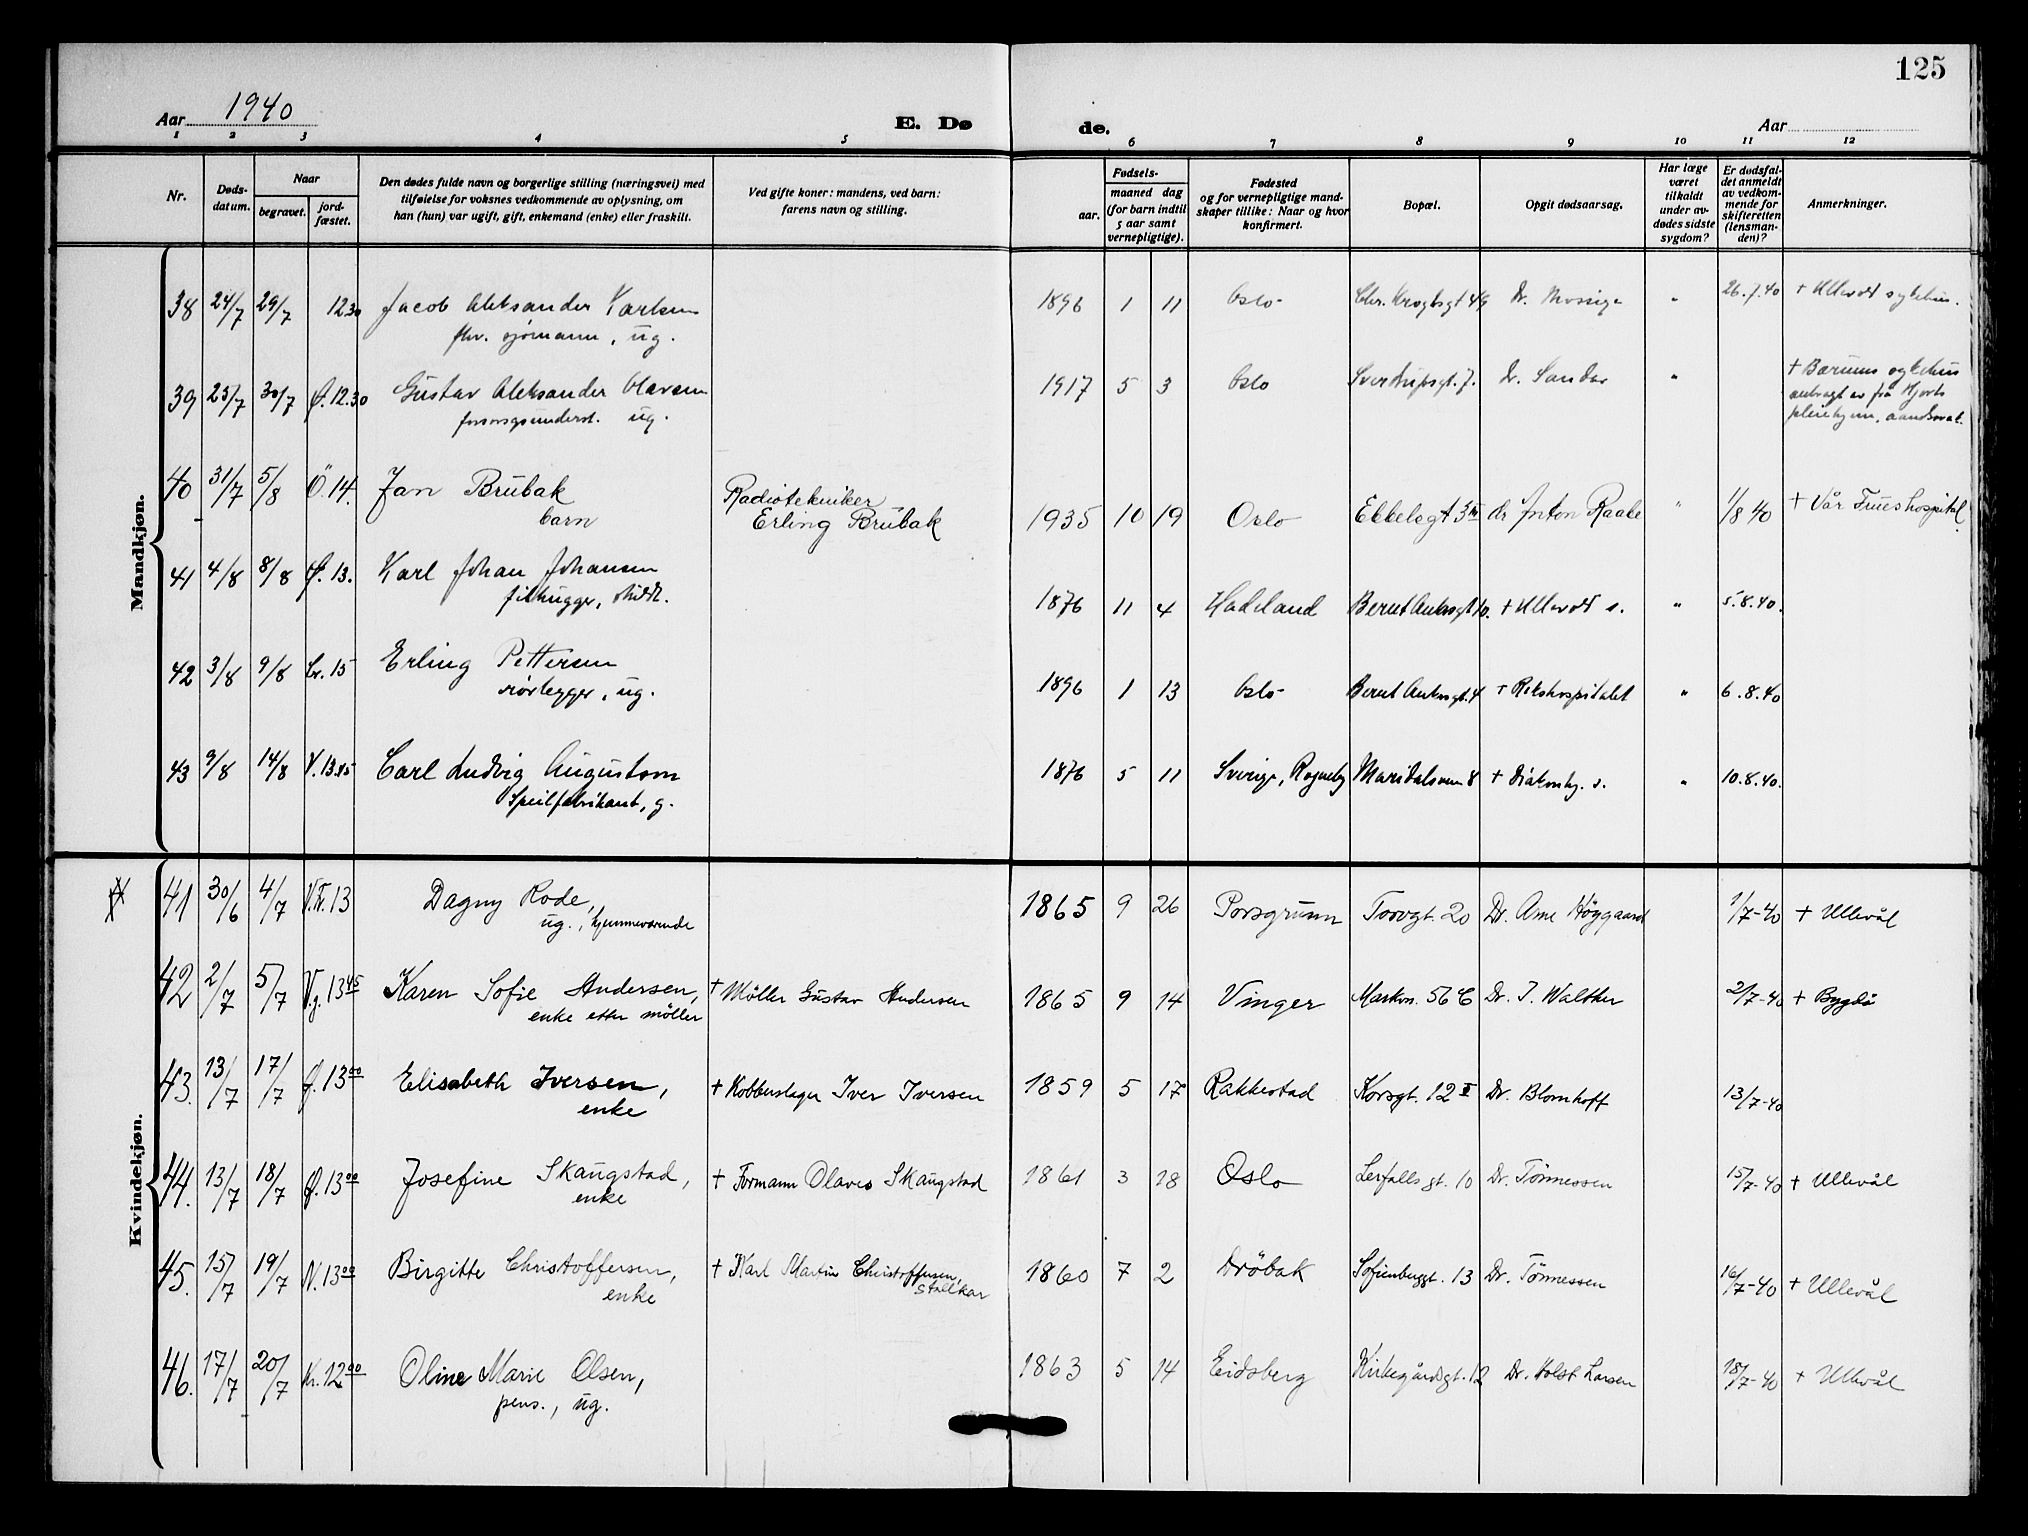 125
Aar 1940
E. Dø
de.
Aar
1 2 3 4 5 6 7 8 9 10 11 12
Nr.
Døds-
datum.
Naar
begravet.
jord-
fæstet.
Den dødes fulde navn og borgerlige stilling (næringsvei) med
tilføielse for voksnes vedkommende av oplysning, om
han (hun) var ugift, gift, enkemand (enke) eller fraskilt.
Ved gifte koner: mandens, ved barn:
farens navn og stilling.
Fødsels-
aar.
maaned dag
(for barn indtil
5 aar samt
vernepligtige).
Fødested
og for vernepligtige mand-
skaper tillike: Naar og hvor
konfirmert.
Bopæl.
Opgit dødsaarsag.
Har læge
været
tilkaldt
under av-
dødes sidste
sygdom?
Er dødsfal-
det anmeldt
av vedkom-
mende for
skifteretten
(lensman-
den)?
Anmerkninger.
Mandkjøn.
38 24/7 29/7 12.30 Jacob Aleksander Karlsen 1896 1 11 Oslo Chr. Kroghsgt 49 Dr. " 26.7.40 + Ullevål sykehus.
fhv. sjømann, ug.
39 23/7 30/7 Ø. 12.30 Gustav Aleksander Olavsen 1917 5 3 Oslo Sverdrupsgt. 7. Dr. Sandar " + Bærums sykehus
forsorgsunderst. ug.
fra Hjorts
pleiehjem,
40 31/7 5/8 Ö. 14. Jan Brubak Radiotekniker
barn Erling Brubak 1935 10 19 Oslo Ebbelsgt 3 III dr Anton Raabe " 1/8 40 + Vår Frues hospital.
41 4/8 8/8 Ø. 13. Karl Johan Johansen 1876 11 4 Hadeland Bernt Ankersgt 10. + Ullevål s. " 5.8.40.
filhugger, skildt.
42 3/8 9/8 Cr. 15 Erling Pettersen 1896 1 13 Oslo Bernt Ankersgt. 4 + Rikshospitalet " 6.8.40
rørlegger, ug.
43 9/8 14/8 V. 13.45 Carl Ludvig Augustson 1876 5 11 Sverige, Maridalsveien 8 + Diakonhj. s. " 10.8.40.
Speilfabrikant, g.
Kvindekjøn.
41 30/6 4/7 13 Dagny Rode, 1865 9 26 Porsgrunn Torvgt. 20 Dr. Arne Höygaard 1/7-40 + Ullevål
ug., hjemmeværende
42 2/7 5/7 V.g. 13 45 Karen Sofie Andersen, + Møller Gustav Andersen 1865 9 14 Vinger Markvn. 56 C Dr. J. Walther 2/7-40 + Bygdö
enke etter møller
43. 13/7 17/7 Ø. 13 00 Elisabeth Iversen, + Kobberslager Iver Iversen 1859 5 17 Rakkestad Korsgt. 12 II Dr. Blomhoff 13/7-40
enke
44. 13/7 18/7 Ø. 13 00 Josefine Skaugstad, + Formann Olaves Skaugstad 1861 3 18 Oslo Lerfallsgt. 10 Dr. Tønnessen 15/7-40 + Ullevål
enke
45. 15/7 19/7 N. 13 00 Birgitte Christoffersen, + Karl Martin Christoffersen, 1860 7 2 Dröbak Sofienberggt. 13 Dr. Tønnessen 16/7-40 + Ullevål
enke stallkar
46. 17/7 20/7 Kr. 12 00 Oline Marie Olsen, 1863 5 14 Eidsberg Kirkegårdsgt. 12 Dr. Holst Larsen 18/7-40 + Ullevål
pens., ug.